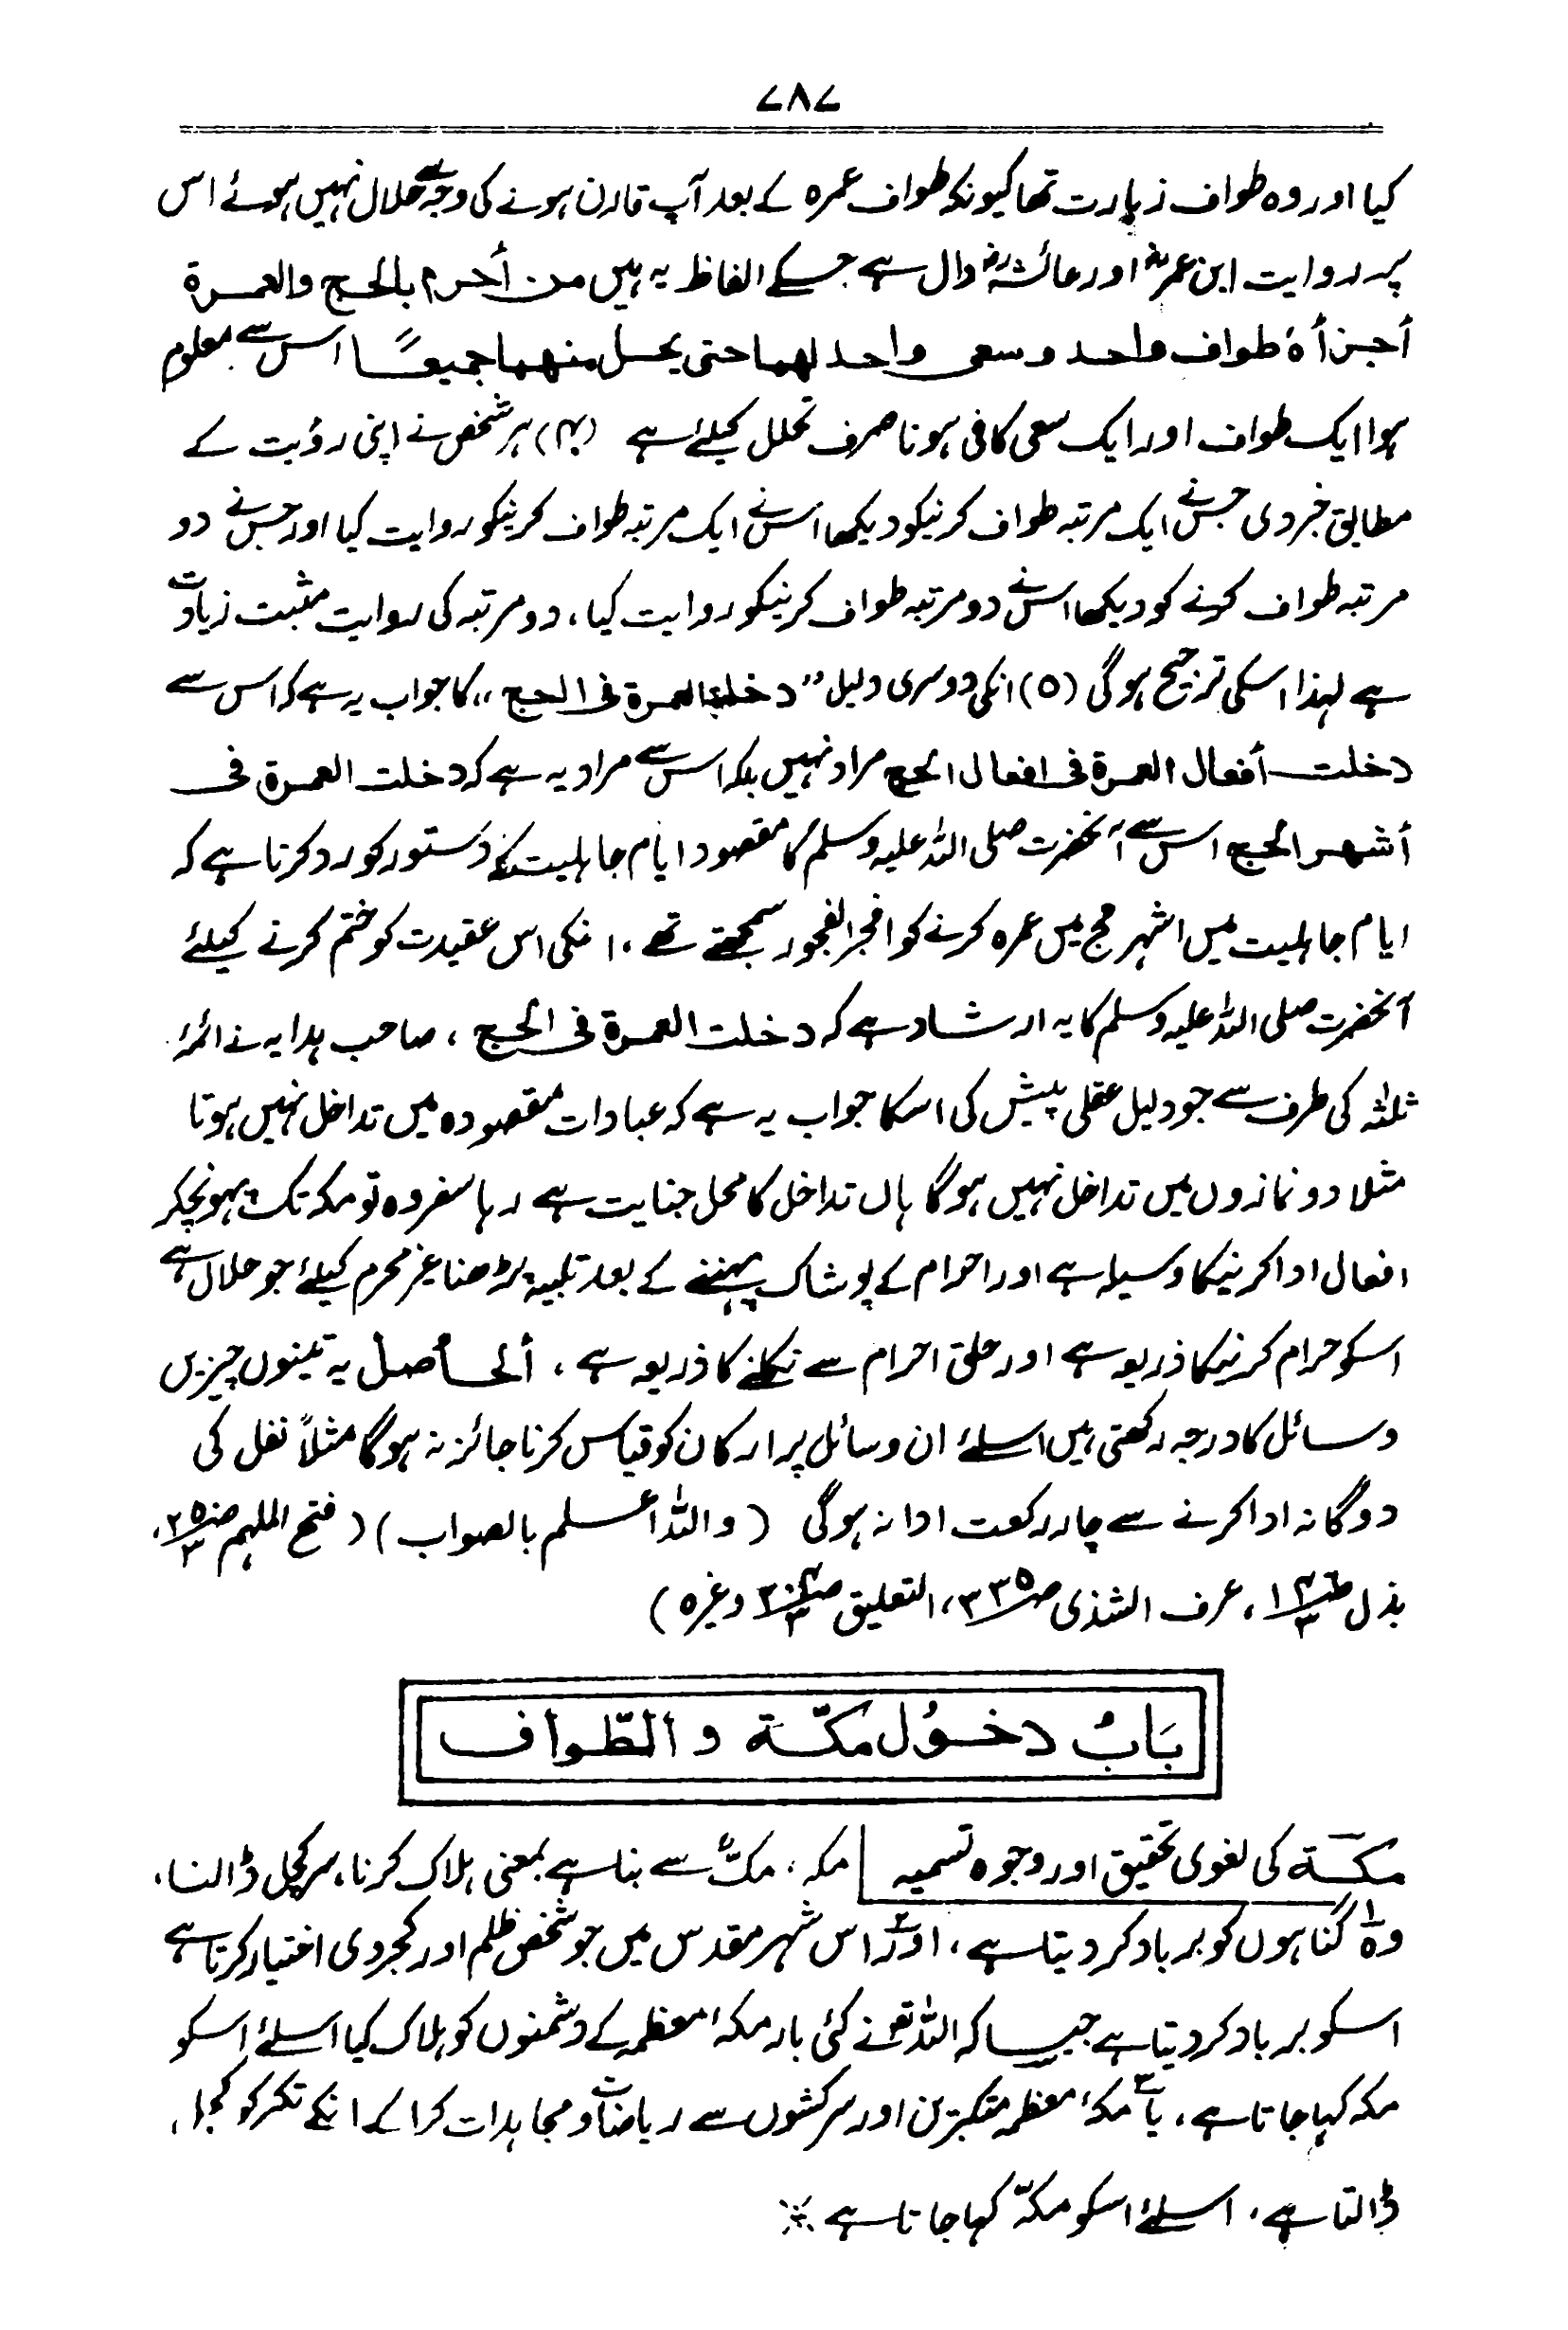 ۷۸۷
کیا اور وہ طواف زیارت تھا کیونکہ طواف عمرہ کے بعد آپ قارن ہونے کی وجہ سے حلال نہیں ہوئے اس
پر روایت ابن عمرؓ اور عائشہؓ دال ہے جسکے الفاظ یہ ہیں من أحرم بالحج والعمرة
أجزأهٗ طواف واحد وسعی واحد لهما حتی یحل منهما جمیعاً اس سے معلوم
ہوا ایک طواف اور ایک سعی کافی ہونا صرف تحلل کیلئے ہے (۴) ہر شخص نے اپنی رؤیت کے
مطابق خبر دی جس نے ایک مرتبہ طواف کرنیکو دیکھا اس نے ایک مرتبہ طواف کرنیکو روایت کیا اور جس نے دو
مرتبہ طواف کرنے کو دیکھا اس نے دو مرتبہ طواف کرنیکو روایت کیا، دو مرتبہ کی روایت مثبت زیادت
ہے لہذا اسکی ترجیح ہوگی (۵) انکی دوسری دلیل "دخلت العمرة فی الحج،، کا جواب یہ ہے کہ اس سے
دخلت أفعال العمرة فی افعال الحج مراد نہیں بلکہ اس سے مراد یہ ہے کہ دخلت العمرة فی
أشهر الحج اس سے آنحضرت صلی اللہ علیہ وسلم کا مقصود ایام جاہلیت کے دستور کو رد کرنا ہے کہ
ایام جاہلیت میں اشہر حج میں عمرہ کرنے کو افجر الفجور سمجھتے تھے، انکی اس عقیدت کو ختم کرنے کیلئے
آنحضرت صلی اللہ علیہ وسلم کا یہ ارشاد ہے کہ دخلت العمرة فی الحج، صاحب ہدایہ نے ائمۂ
ثلٰثہ کی طرف سے جو دلیل عقلی پیش کی اسکا جواب یہ ہے کہ عبادات مقصودہ میں تداخل نہیں ہوتا
مثلا دو نمازوں میں تداخل نہیں ہوگا ہاں تداخل کا محل جنایت ہے رہا سفر وہ تو مکہ تک پہونچکر
افعال ادا کرنیکا وسیلہ ہے اور احرام کے پوشاک پہننے کے بعد تلبیہ پڑھنا غیر محرم کیلئے جو حلال ہے
اسکو حرام کرنیکا ذریعہ ہے اور حلق احرام سے نکلنے کا ذریعہ ہے، ألحاصل یہ تینوں چیزیں
وسائل کا درجہ رکھتی ہیں اسلئے ان وسائل پر ارکان کو قیاس کرنا جائز نہ ہوگا مثلاً نفل کی
دوگانہ ادا کرنے سے چار رکعت ادا نہ ہوگی (واللہ اعلم بالصواب) (فتح الملہم
بذل، عرف الشذی ص۳۳۵، التعلیق وغیرہ)
بَابُ دخُول مَکّة والطّواف
مکة کی لغوی تحقیق اور وجوہ تسمیہ مکہ، مکّ سے بنا ہے بمعنی ہلاک کرنا، سر کچل ڈالنا،
وہ ۱ گناہوں کو برباد کر دیتا ہے، اور ۲ اس شہر مقدس میں جو شخص ظلم اور کجروی اختیار کرتا ہے
اسکو برباد کر دیتا ہے جیسا کہ اللہ تعؔ نے کئی بار مکۂ معظمہ کے دشمنوں کو ہلاک کیا اسلئے اسکو
مکہ کہا جاتا ہے، یا ۳ مکۂ معظمہ متکبرین اور سرکشوں سے ریاضات و مجاہدات کرا کے انکے تکبر کو کچل
ڈالتا ہے، اسلئے اسکو مکّہ کہا جاتا ہے ※